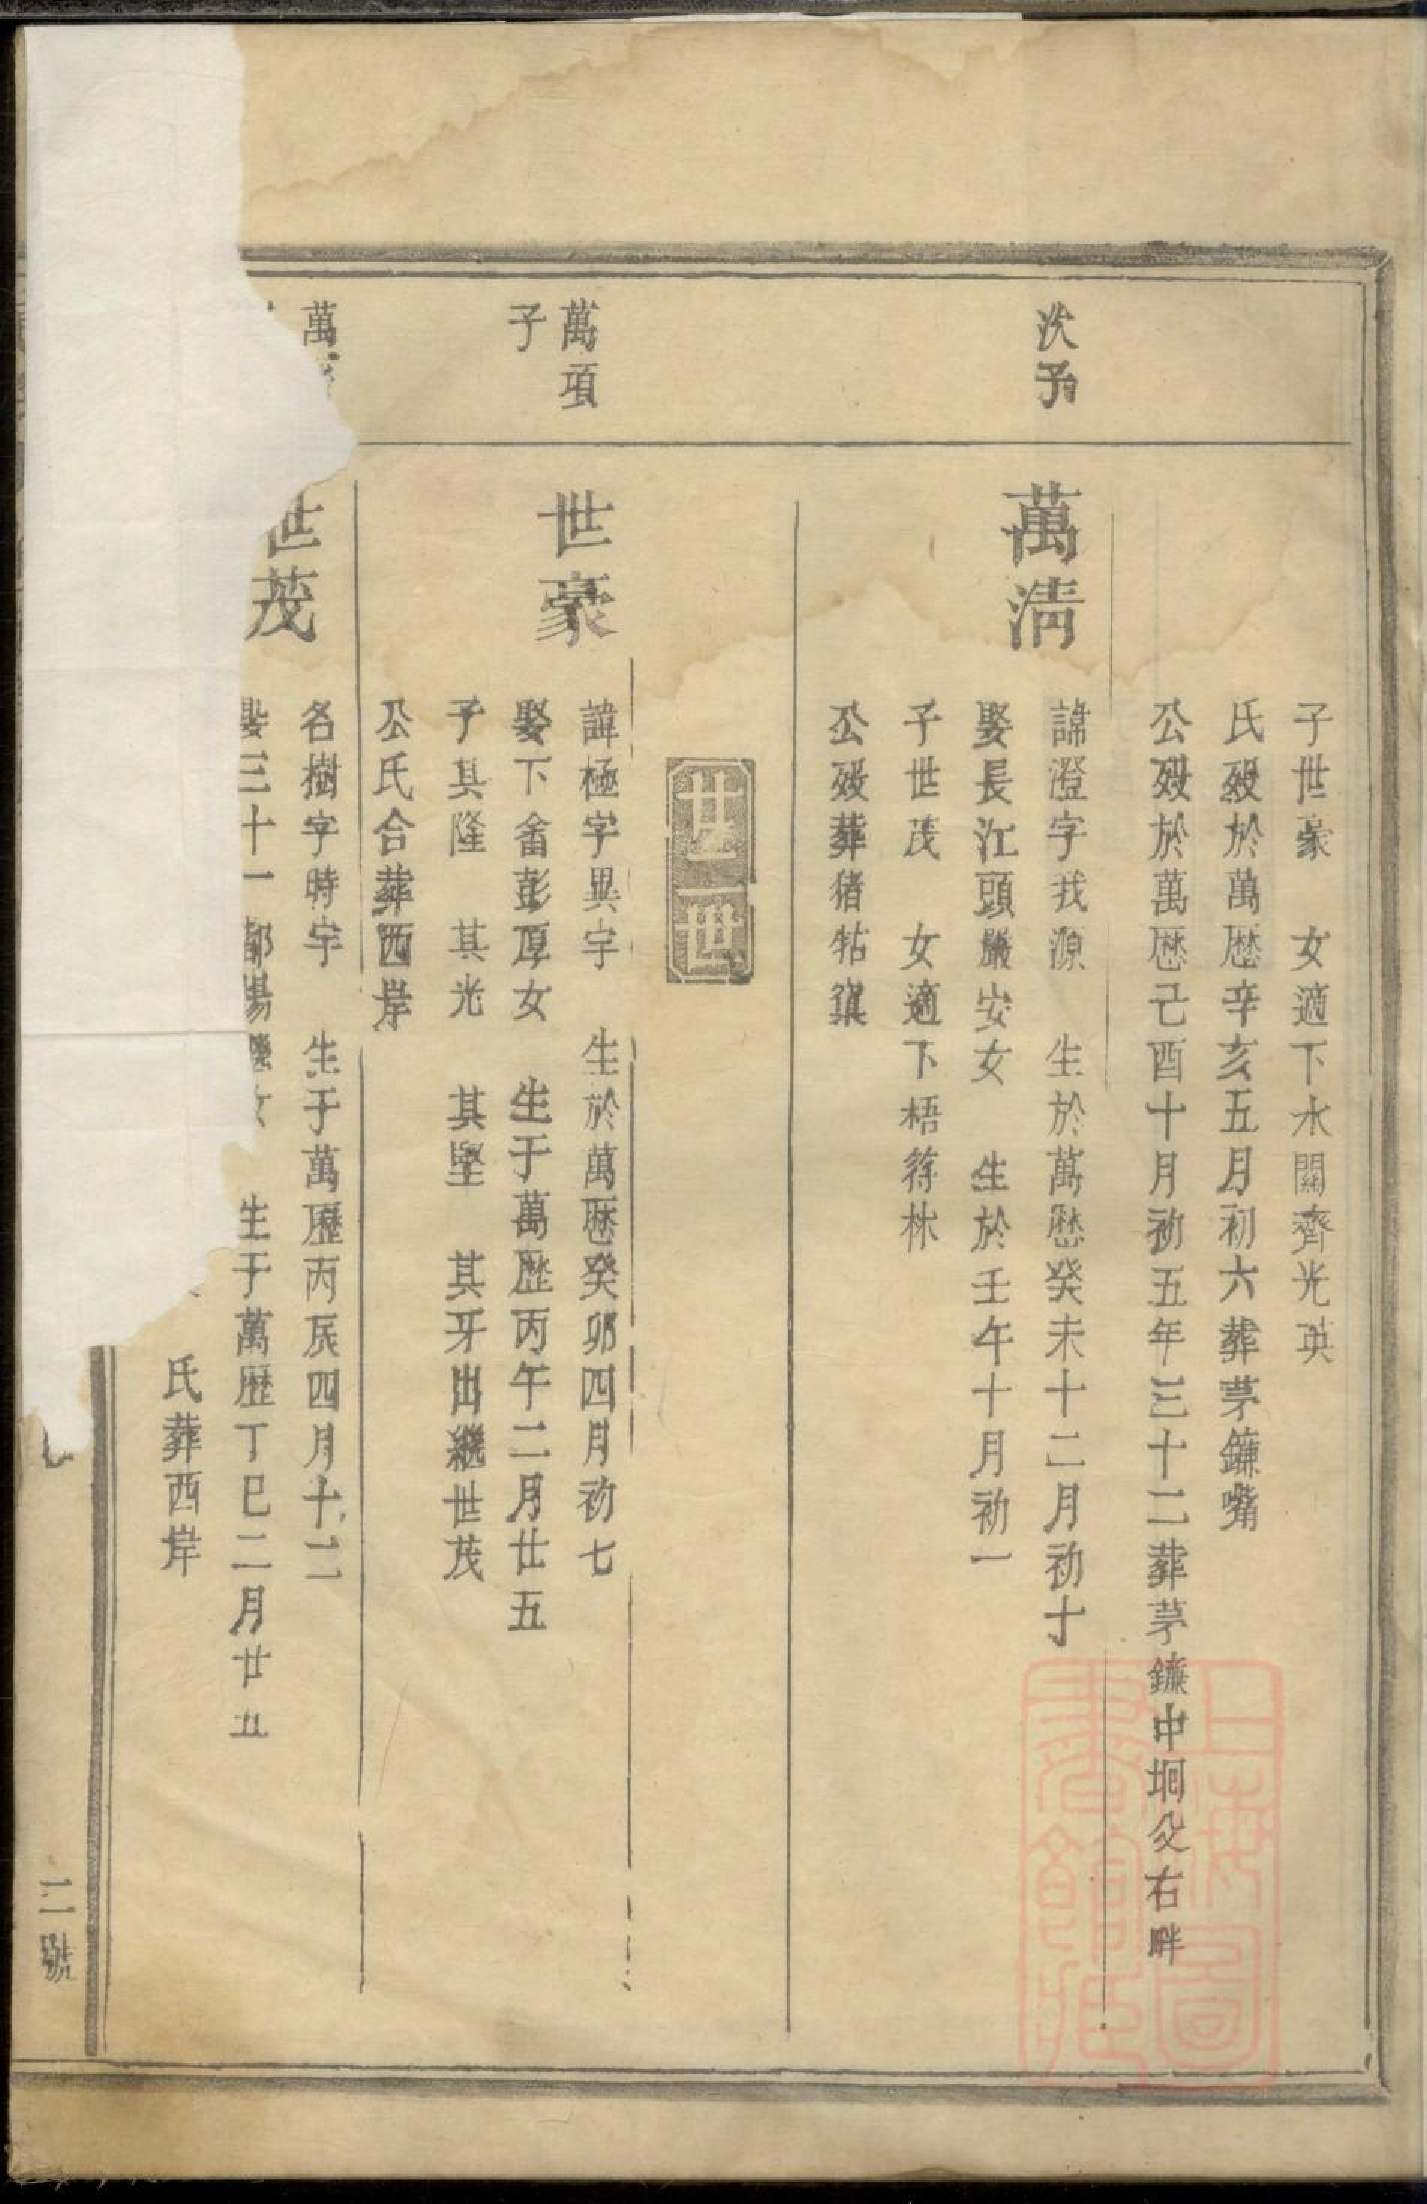 子世豪　女適下水關齊光英
氏歿於萬歷辛亥五月初六葬茅鐮嘴
公歿於萬歷己酉十月初五年三十二葬茅鐮中坰父右畔
次子
萬淸
諱澄字我源　生於萬歷癸未十二月初十
娶長江頭嚴安女　生於壬午十月初一
子世茂　女適下梧徐林
公歿葬猪牯
廿一世
萬項
子
世豪
諱極字異宇　生於萬歷癸卯四月初七
娶下畬彭厚女　生于萬歷丙午二月廿五
子其隆　其光　其堅　其牙出繼世茂
公氏合葬西岸
萬
世茂
名樹字時宇　生于萬歷丙辰四月十二
娶三十一都楊女　生于萬歷丁巳二月廿五
氏葬西岸
二號
上海圖書館藏